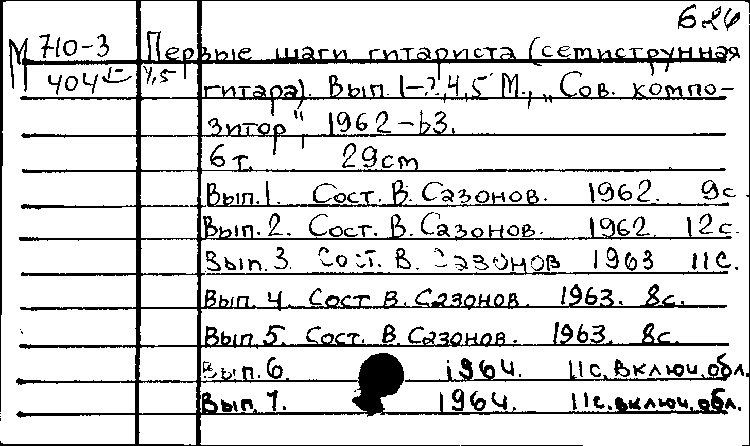 626
М 710-3 Первые шаги гитариста (семиструнная
404 1- 4,5 гитара). Вып. 1-2,4,5 М., „Сов. компо-
зитор", 1962-63.
6 т. 29cm
Вып. 1. Сост. В. Сазонов. 1962. 9с
Вып. 2. Сост. В. Сазонов. 1962 12с.
Вып. 3. Сост. В. Сазонов 1963 11с.
Вып. 4. Сост В. Сазонов. 1963. 8с.
Вып. 5. Сост. В. Сазонов. 1963. 8с.
Вып. 6. 1964. 11с. включ. обл.
Вып. 7. 1964. 11с. включ. обл.